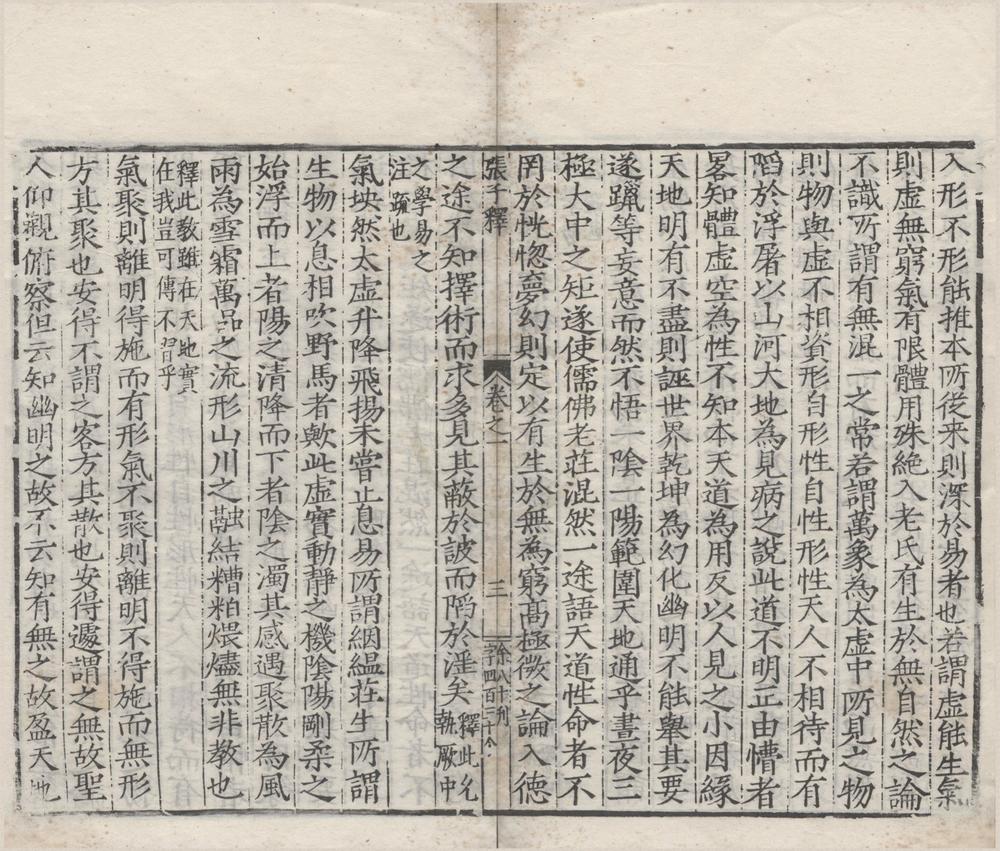 入形不形能推本所從来則深於易者也若謂虛能生氣
則虛無窮氣有限體用殊絶入老氏有生於無自然之論
不識所謂有無混一之常若謂萬象為太虛中所見之物
則物與虛不相資形自形性自性形性天人不相待而有
䧟於浮屠以山河大地為見病之說此道不明正由懵者
畧知體虛空為性不知本天道為用反以人見之小因緣
天地明有不盡則誣世界乾坤為幻化幽明不能舉其要
遂躐等妄意而然不悟一隂一陽範圍天地通乎晝夜三
極大中之矩遂使儒佛老莊混然一途語天道性命者不
罔於恍惚夣幻則定以有生於無為窮髙極微之論入德
張子釋
卷之一
三
余八十刋
字四百二十个
之途不知擇術而求多見其蔽於詖而䧟於淫矣
釋此允
執厥中
之學易之
注䟽也
氣坱然太虛升降飛揚未嘗止息易所謂絪緼莊生所謂
生物以息相吹野馬者歟此虛實動靜之機陰陽剛柔之
始浮而上者陽之清降而下者陰之濁其感遇聚散為風
雨為雪霜萬品之流形山川之融結糟粕煨燼無非教也
釋此教雖在天地實
在我豈可傳不習乎
氣聚則離明得施而有形氣不聚則離明不得施而無形
方其聚也安得不謂之客方其散也安得遽謂之無故聖
人仰觀俯察但云知幽明之故不云知有無之故盈天地